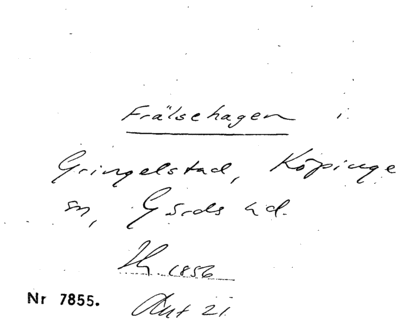 Frälsehagen i
Gringelstad, Köpinge
sn, Gärds hd.
1856
Nr 7855.
Akt 21